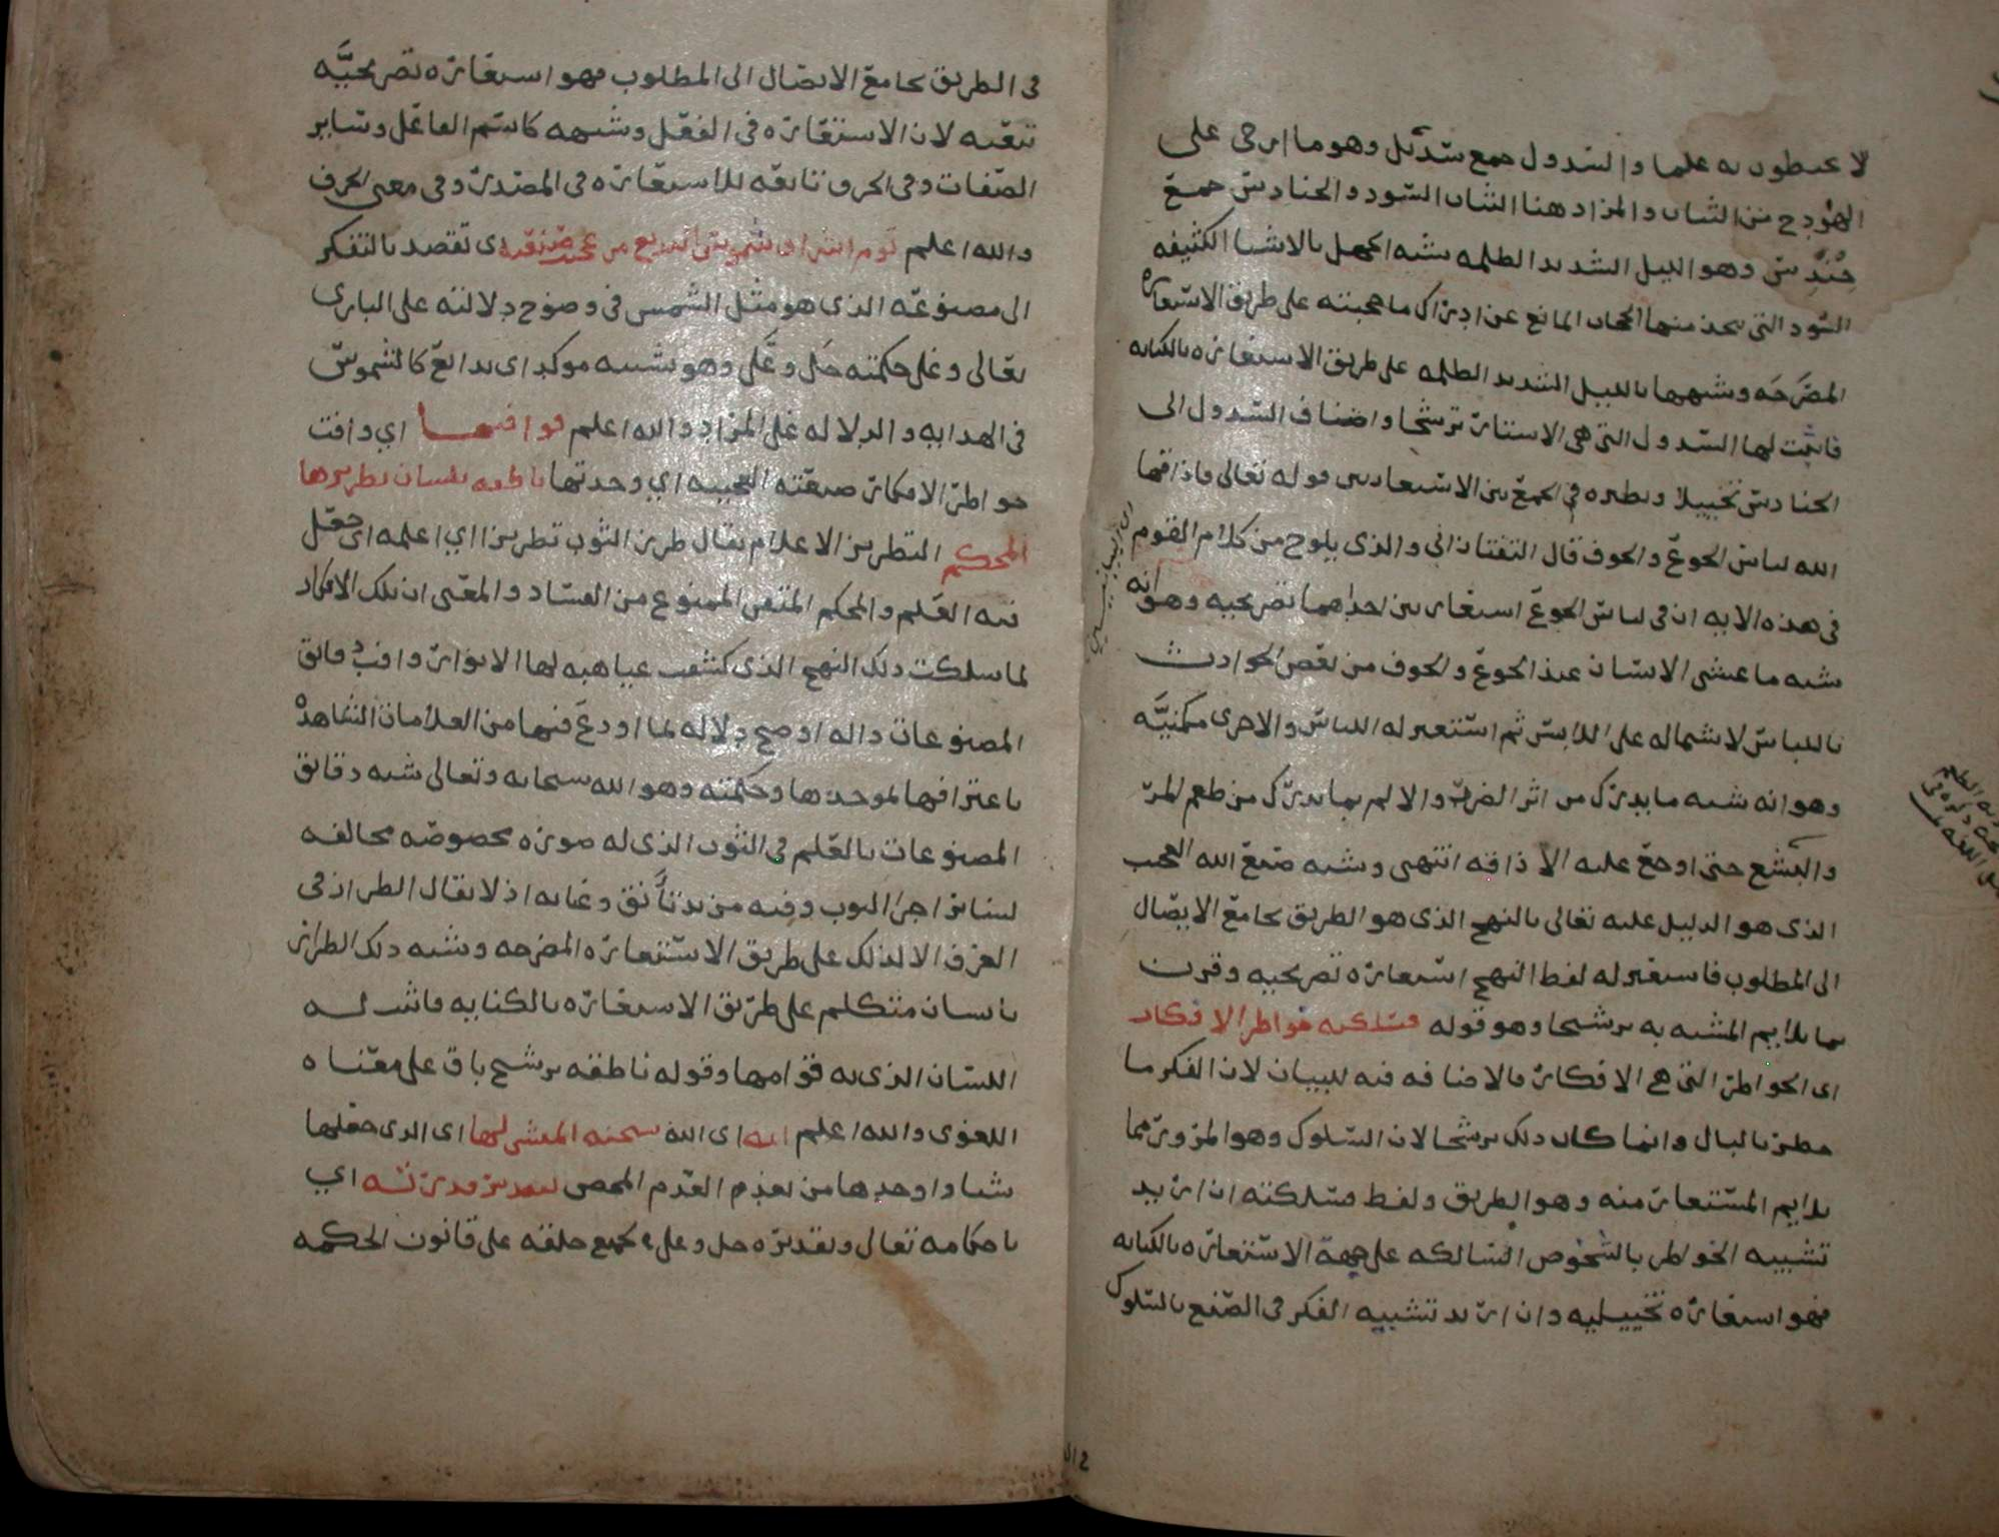 لا يحيطون به علما والسدول جمع سديل وهو ما ارخى على
الهودج من الثياب والمراد هنا الثياب السود والحنادس جمع
حندس وهو الليل الشديد الظلمه شبه الجهل بالاشيا الكثيفه
السود التي يتخذ منها الحجاب المانع عن ادراك ما حجبته على طريق الاستعاره
المصرحه وشبهها بالليل الشديد الظلمه على طريق الاستعاره بالكنايه
فاثبت لها السدول التي هي الاستار ترشيحا واضاف السدول الى
الحنادس تخييلا ونظيره في الجمع بين الاستعارتين قوله تعالى فاذاقها
الله لباس الجوع والخوف قال التفتازاني والذي يلوح من كلام القوم
في هذه الايه ان في لباس الجوع استعارتين احداهما تصريحيه وهو انه
شبه ما غشي الانسان عند الجوع والخوف من بعض الحوادث
باللباس لاشتماله على اللابس ثم استعير له اللباس والاخرى مكنيّه
وهو انه شبه ما يدرك من اثر الضر والالم بما يدرك من طعم المر
والبشع حتى اوقع عليه الاذاقه انتهى وشبه صنع الله العجيب
الذي هو الدليل عليه تعالى بالنهج الذي هو الطريق بجامع الايصال
الى المطلوب فاستعير له لفظ النهج استعاره تصريحيه وقرن
بما يلايم المشبه به ترشيحا وهو قوله فسلكته خواطر الافكار
اى الخواطر التي هي الافكار فالاضافه فيه للبيان لان الفكر ما
خطر بالبال وانما كان ذلك ترشيحا لان السلوك وهو المرور مما
يلايم المستعار منه وهو الطريق ولفظ فسلكته ان اريد
تشبيه الخواطر بالشخوص السالكه على جهة الاستعاره بالكنايه
فهو استعاره تخييليه وان اريد تشبيه الفكر في الصنع بالسلوك
في الطريق بجامع الايصال الى المطلوب فهو استعاره تصريحيّه
تبعيه لان الاستعاره في الفعل وشبهه كاسم الفاعل وساير
الصفات وفي الحرف تابعه للاستعاره في المصدر وفي معنى الحرف
والله اعلم تؤم اشراق شموس البديع من عجيب صنعه اى تقصد بالتفكر
الى مصنوعه الذي هو مثل الشمس في وضوح دلالته على الباري
تعالى وعلى حكمته جل وعلى وهو تشبيه موكد اى بدائع كالشموس
في الهدايه والدلاله على المراد والله اعلم فوافتها اي وافت
خواطر الافكار صنعته العجيبه اي وجدتها ناطقه بلسان تطريزها
المحكم التطريز الاعلام يقال طرز الثوب تطريزا اي اعلمه اى جعل
فيه العلم والمحكم المتقن الممنوع من الفساد والمعنى ان تلك الافكار
لما سلكت ذلك النهج الذي كشفت غياهبه لها الانوار وافت دقائق
المصنوعات داله اوضح دلاله لما اودع فيها من العلامات الشاهده
باعترافها لموجدها وحكمته وهو الله سبحانه وتعالى شبه دقايق
المصنوعات بالعلم في الثوب الذي له صوره مخصوصه مخالفه
لساير اجزا الثوب وفيه مزيد تأنق وغايه اذ لا يقال الطراز في
العرف الا لذلك على طريق الاستعاره المصرحه وشبه ذلك الطراز
بانسان متكلم على طريق الاستعاره بالكنايه فاثبت له
اللسان الذي به قوامها وقوله ناطقه ترشيح باق على معناه
اللغوى والله اعلم انه اى الله سبحنه المنشي لها اى الذي جعلها
شيا واوجدها من العدم المحض بتقدير قدرته اي
باحكامه تعالى وتقديره جل وعلى جميع خلقه على قانون الحكمه